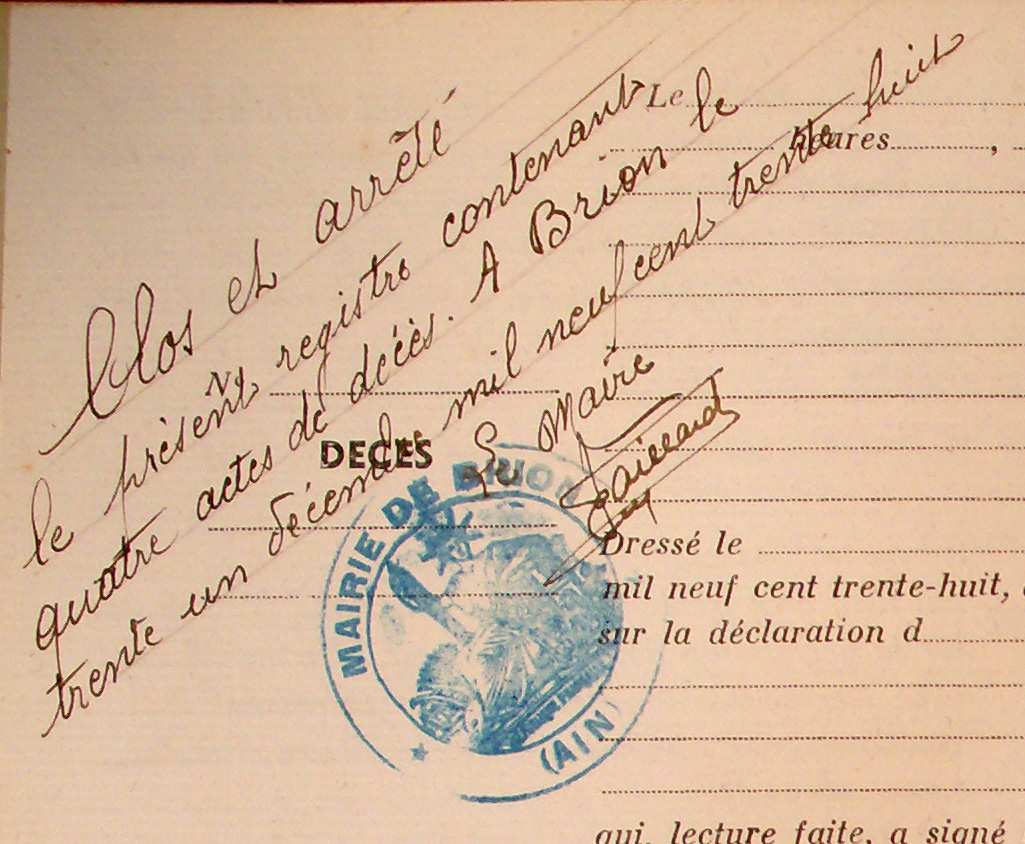 Clos et arrêté
le présent registre contenant
quatre actes de décès. A Brion le
trente un décembre mil neuf cent trente huit
Le Maire
Gaillard
DECES
MAIRIE DE BRION
(AIN)
Le
heures ,
Dressé le
mil neuf cent trente-huit,
sur la déclaration d
qui, lecture faite, a signé